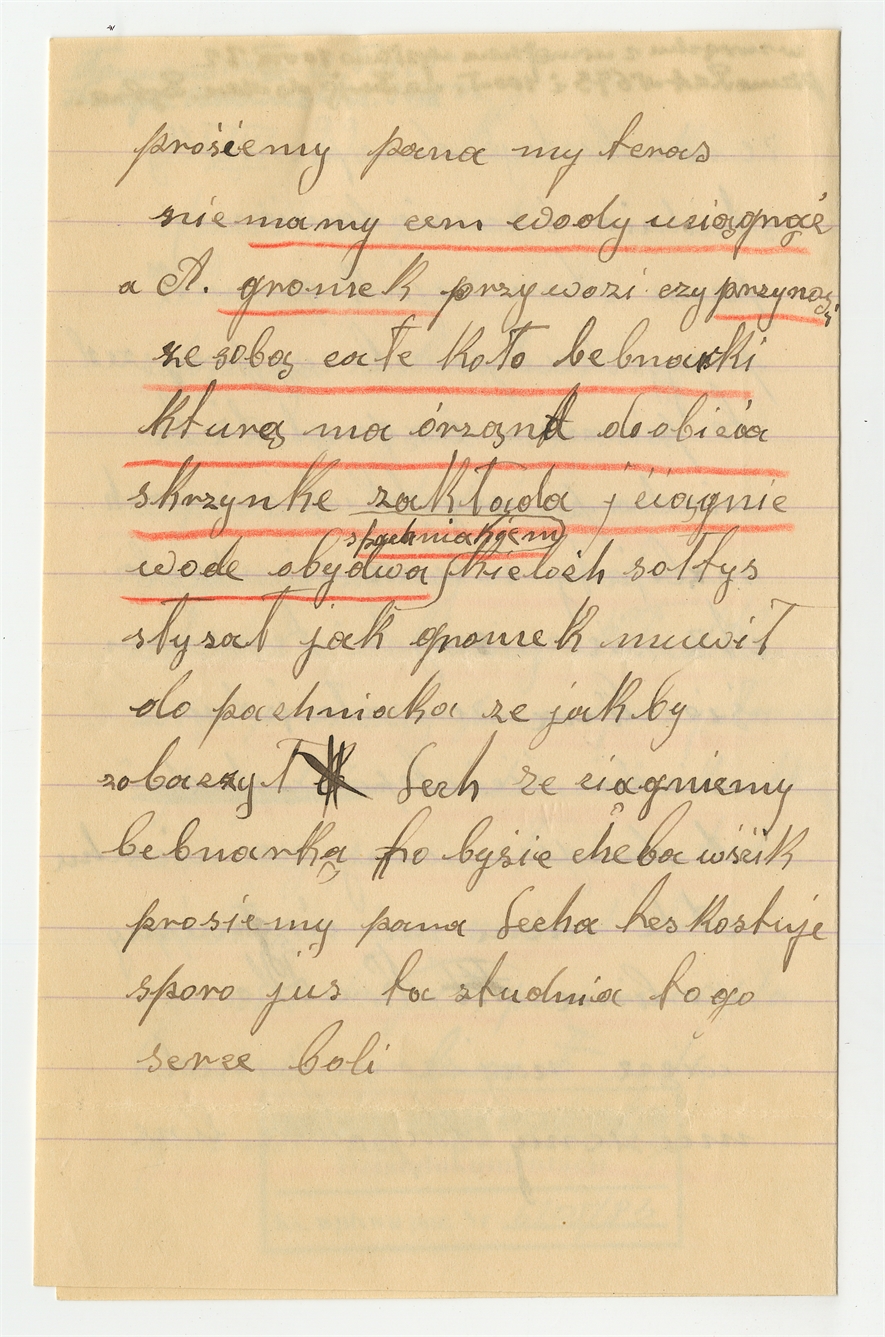 prośiemy pana my teras
niemamy cem wody uciągnąć
a A. gromek przywozi czy przynosi
ze sobą całe koło bebnarki
kturą ma órzańd do obicia
skrzynke zakłada j ćiągnie
spachniakjem
wode obydwa kieloch sołtys
słyszał jak gromek muwił
do pachniaka ze jak by
zobaczył Lech ze ciągniemy
bebnarką to byśie cheba wśćik
prosiemy pana Lecha tes kostuje
sporo jus ta studnia togo
serce boli